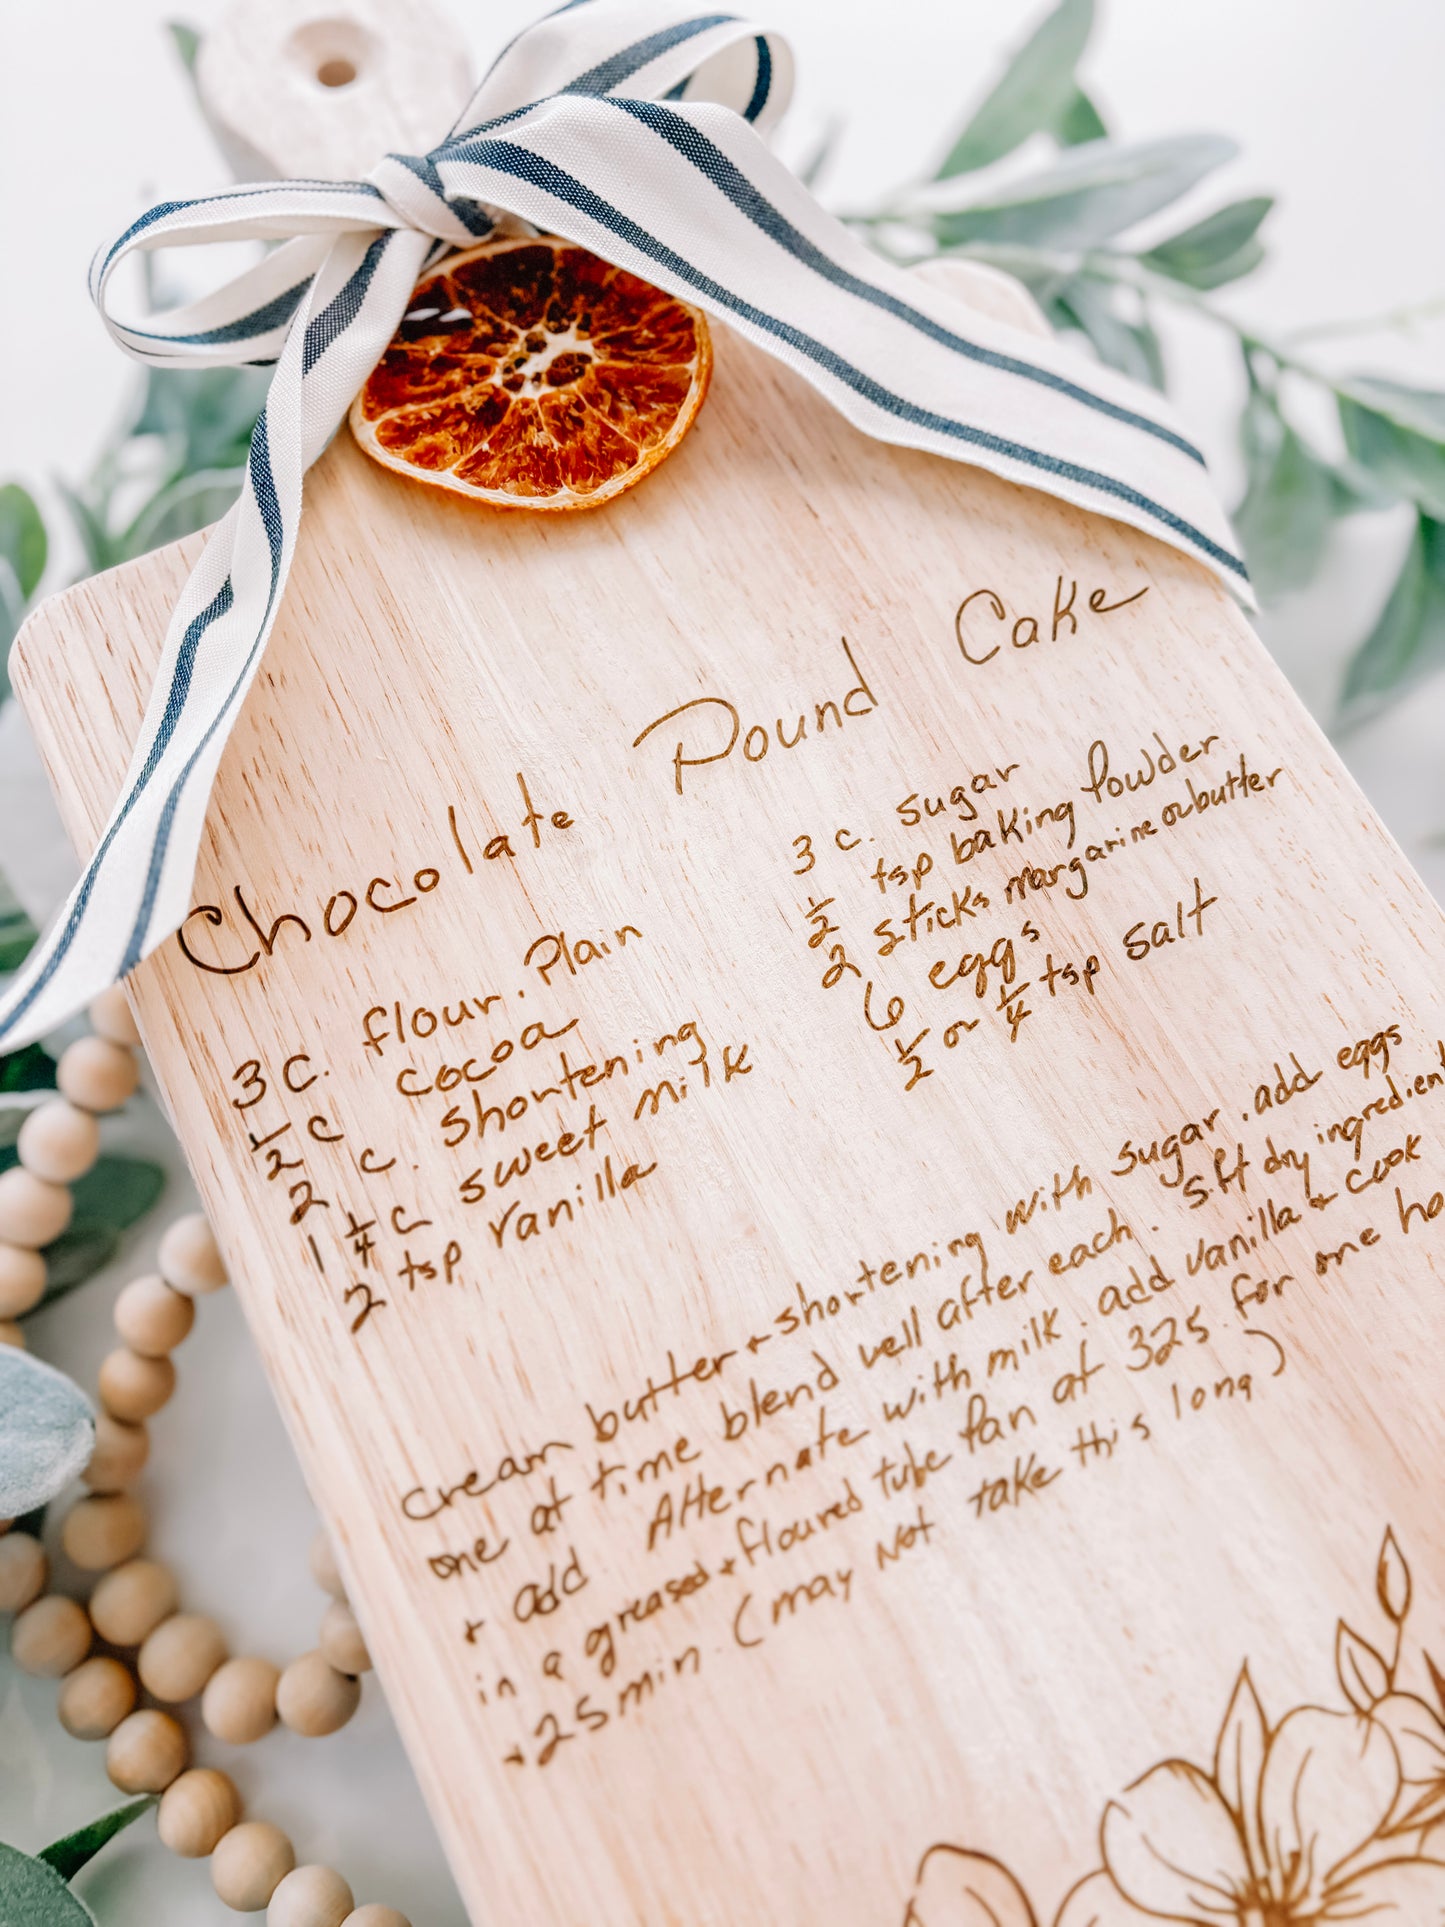 Chocolate Pound Cake
3 c. flour. Plain
1/2 c cocoa
2 c. shortening
1 1/4 c sweet milk
2 tsp vanilla
3 c. sugar
1/2 tsp baking Powder
2 sticks margarine or butter
6 eggs
1/2 or 1/4 tsp salt
cream butter + shortening with sugar. add eggs
one at time blend well after each. sift dry ingredient
+ add. Alternate with milk. add vanilla + cook
in a greased + floured tube Pan at 325. for one ho
+ 25 min. (may Not take this long)